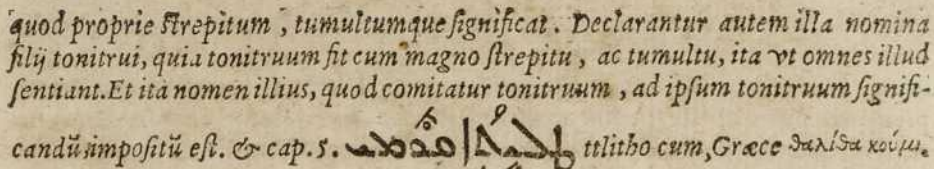 quod proprie ſtrepitum, tumultumque ſignificat. Declarantur autem illa nomina
filij tonitrui, quia tonitruum fit cum magno ſtrepitu, ac tumultu, ita vt omnes illud
ſentiant. Et ita nomen illius, quod comitatur tonitruum, ad ipſum tonitruum ſignifi-
candũ impoſitũ eſt. & cap. 5. ܛܠܝܬܳܐ ܩܘܡܝ ttlitho cum, Græce θαλίθα κούμι.